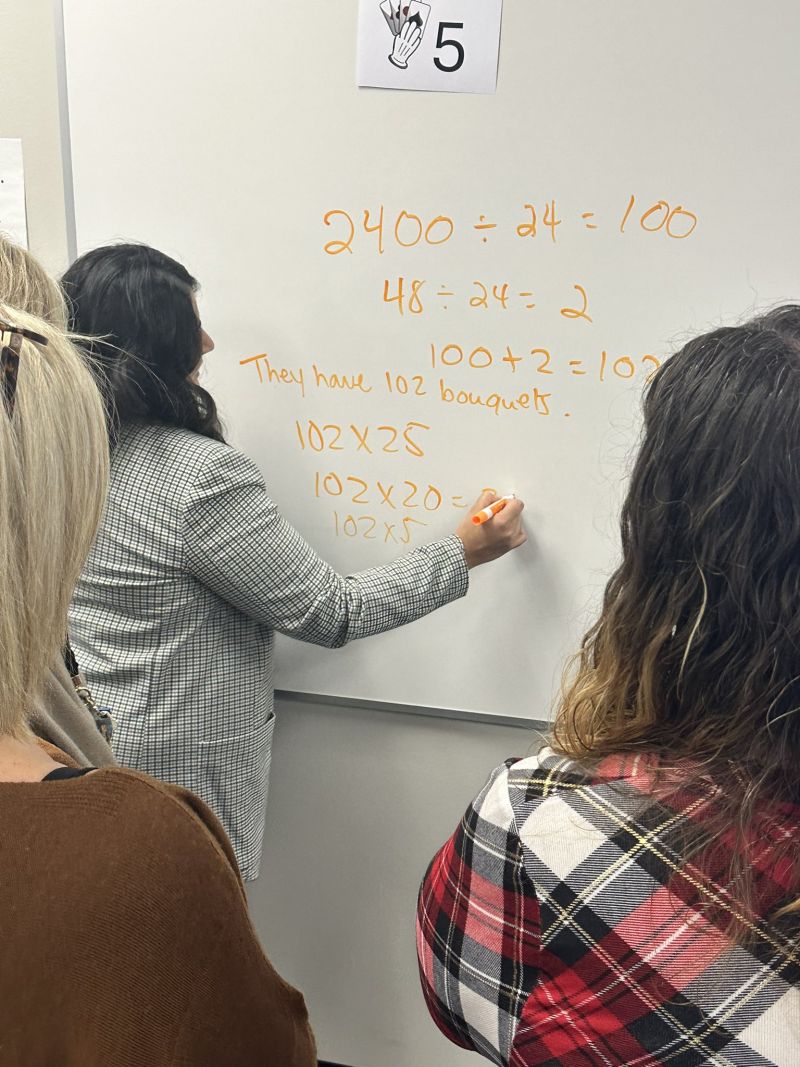 5
2400 ÷ 24 = 100
48 ÷ 24 = 2
100 + 2 = 102
They have 102 bouquets.
102 x 25
102 x 20 =
102 x 5